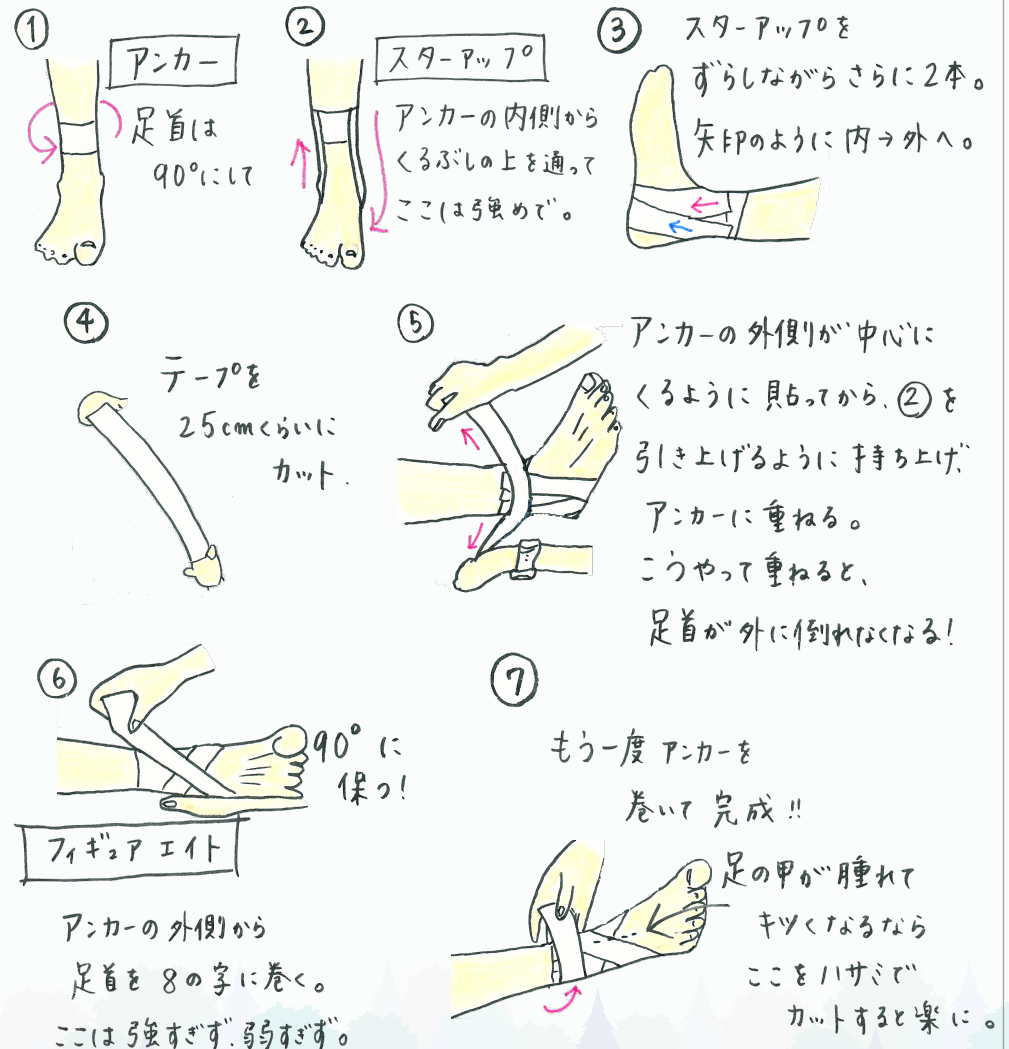 ①
アンカー
足首は
90°にして
②
スターアップ
アンカーの内側から
くるぶしの上を通って
ここは強めで。
③
スターアップを
ずらしながらさらに2本。
矢印のように内→外へ。
④
テープを
25cmくらいに
カット.
⑤
アンカーの外側が中心に
くるように貼ってから、②を
引き上げるように持ち上げ、
アンカーに重ねる。
こうやって重ねると、
足首が外に倒れなくなる!
⑥
90°に
保つ!
フィギュアエイト
アンカーの外側から
足首を8の字に巻く。
ここは強すぎず、弱すぎず。
⑦
もう一度アンカーを
巻いて完成!!
足の甲が腫れて
キツくなるなら
ここをハサミで
カットすると楽に。